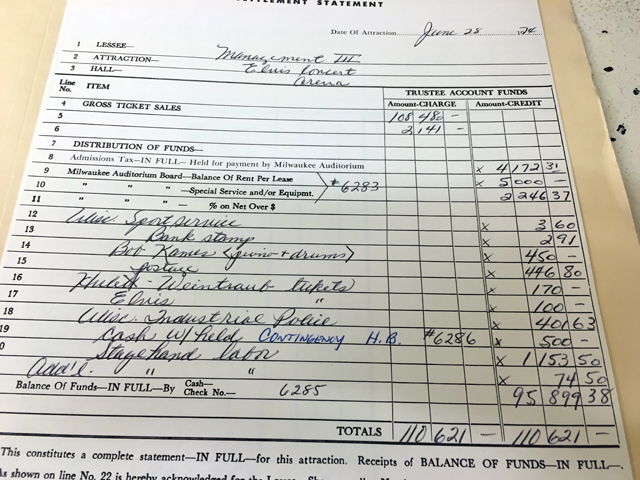 SETTLEMENT STATEMENT
Date Of Attraction June 28 1974
1 LESSEE— Management III
2 ATTRACTION— Elvis Concert
3 HALL— Arena
Line No. ITEM TRUSTEE ACCOUNT FUNDS
Amount-CHARGE Amount-CREDIT
4 GROSS TICKET SALES
5 108 480 –
6 2 141 –
7 DISTRIBUTION OF FUNDS—
8 Admissions Tax—IN FULL—Held for payment by Milwaukee Auditorium x 4 172 31
9 Milwaukee Auditorium Board—Balance Of Rent Per Lease x 5 000 –
10 " " " —Special Service and/or Equipmt. #6283 2 246 37
11 " " " — % on Net Over $
12 Wisc. Sportservice x 3 60
13 Bank stamp x 2 91
14 Bob Kames (piano + drums) x 450 –
15 postage x 446 80
16 Weintraub tickets) x 170 –
17 Elvis " x 100 –
18 Wisc. Industrial Police x 401 63
19 Cash w/held CONTINGENCY H.B. #6286 x 500 –
0 Stagehand labor x 1 153 50
Add'l. " " x 74 50
Balance Of Funds—IN FULL—By Cash— Check No.— 6285 95 899 38
TOTALS 110 621 – 110 621 –
This constitutes a complete statement—IN FULL—for this attraction. Receipts of BALANCE OF FUNDS—IN FULL—
As shown on line No. 22 is hereby acknowledged for the